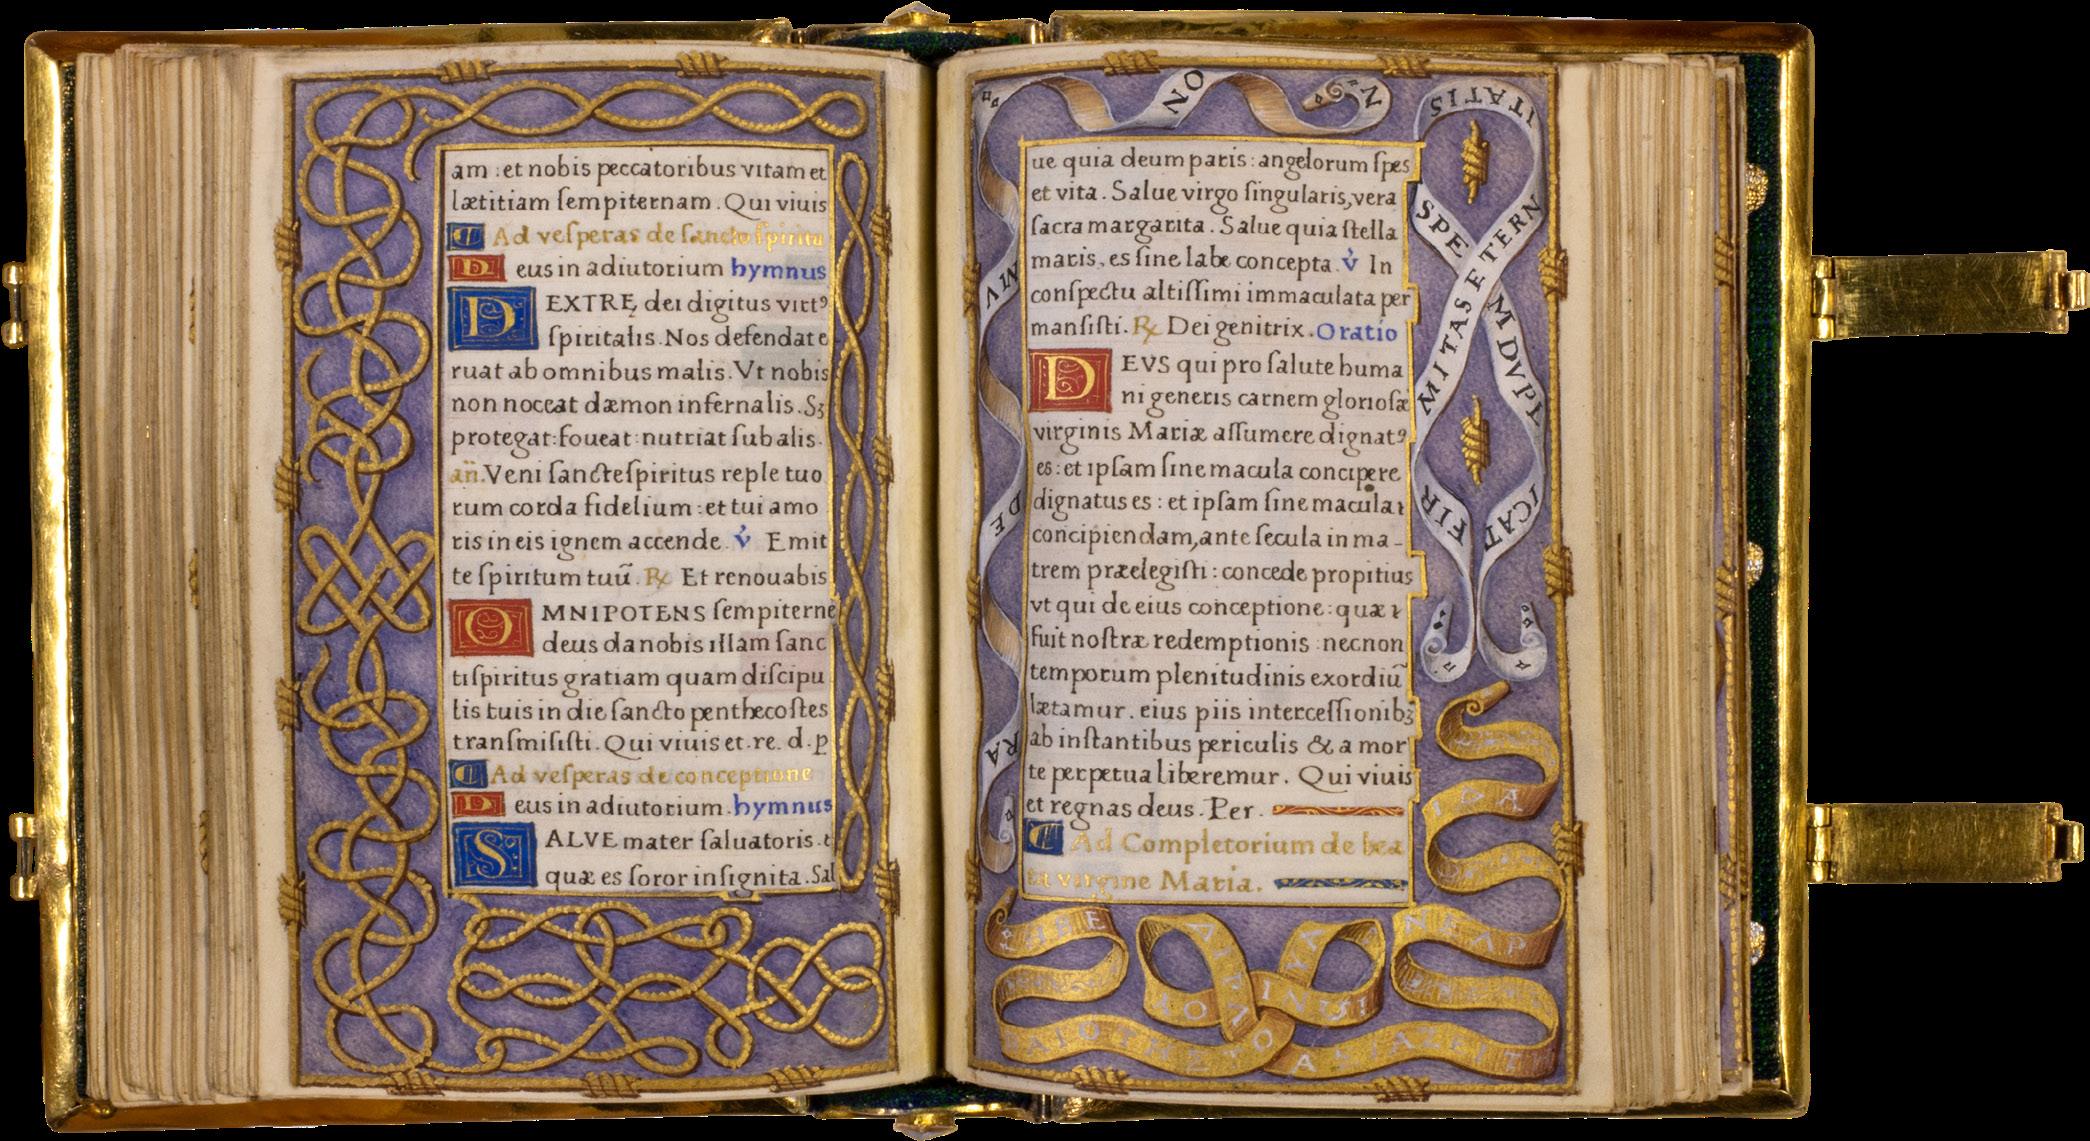 am : et nobis peccatoribus vitam et
lætitiam ſempiternam . Qui viuis
Ad veſperas de ſancto ſpiritu
Deus in adiutorium hymnus
DEXTRĘ dei digitus virtꝰ
ſpiritalis . Nos defendat e
ruat ab omnibus malis . Vt nobis
non noceat dæmon infernalis . Sꝫ
protegat : foueat : nutriat ſub alis .
añ . Veni ſancte ſpiritus reple tuo
rum corda fidelium : et tui amo
ris in eis ignem accende . v̓ Emit
te ſpiritum tuū . ℞ Et renouabis
OMNIPOTENS ſempiterne
deus da nobis illam ſanc
ti ſpiritus gratiam quam diſcipu
lis tuis in die ſancto penthecoſtes
tranſmiſiſti . Qui viuis et . re . d . p
Ad veſperas de conceptione
Deus in adiutorium . hymnus
SALVE mater ſaluatoris . ꝛ
quæ es ſoror inſignita . Sal
ue quia deum paris : angelorum ſpes
et vita . Salue virgo ſingularis, vera
ſacra margarita . Salue quia ſtella
maris, es ſine labe concepta . v̓ In
conſpectu altiſſimi immaculata per
manſiſti . ℞ Dei genitrix . Oratio
DEVS qui pro ſalute huma
ni generis carnem glorioſæ
virginis Mariæ aſſumere dignatꝰ
es : et ipſam ſine macula concipere
dignatus es : et ipſam ſine macula ꝛ
concipiendam, ante ſecula in ma-
trem præelegiſti : concede propitius
vt qui de eius conceptione : quæ ꝛ
fuit noſtræ redemptionis necnon
temporum plenitudinis exordiū
lætamur . eius piis interceſſionibꝫ
ab inſtantibus periculis & a mor
te perpetua liberemur . Qui viuis
et regnas deus . Per .
Ad Completorium de bea
ta virgine Maria .
NON
MV
DE
RA
FIR
MITAS ETERN
ITATIS
SPE
M DVPL
ICAT